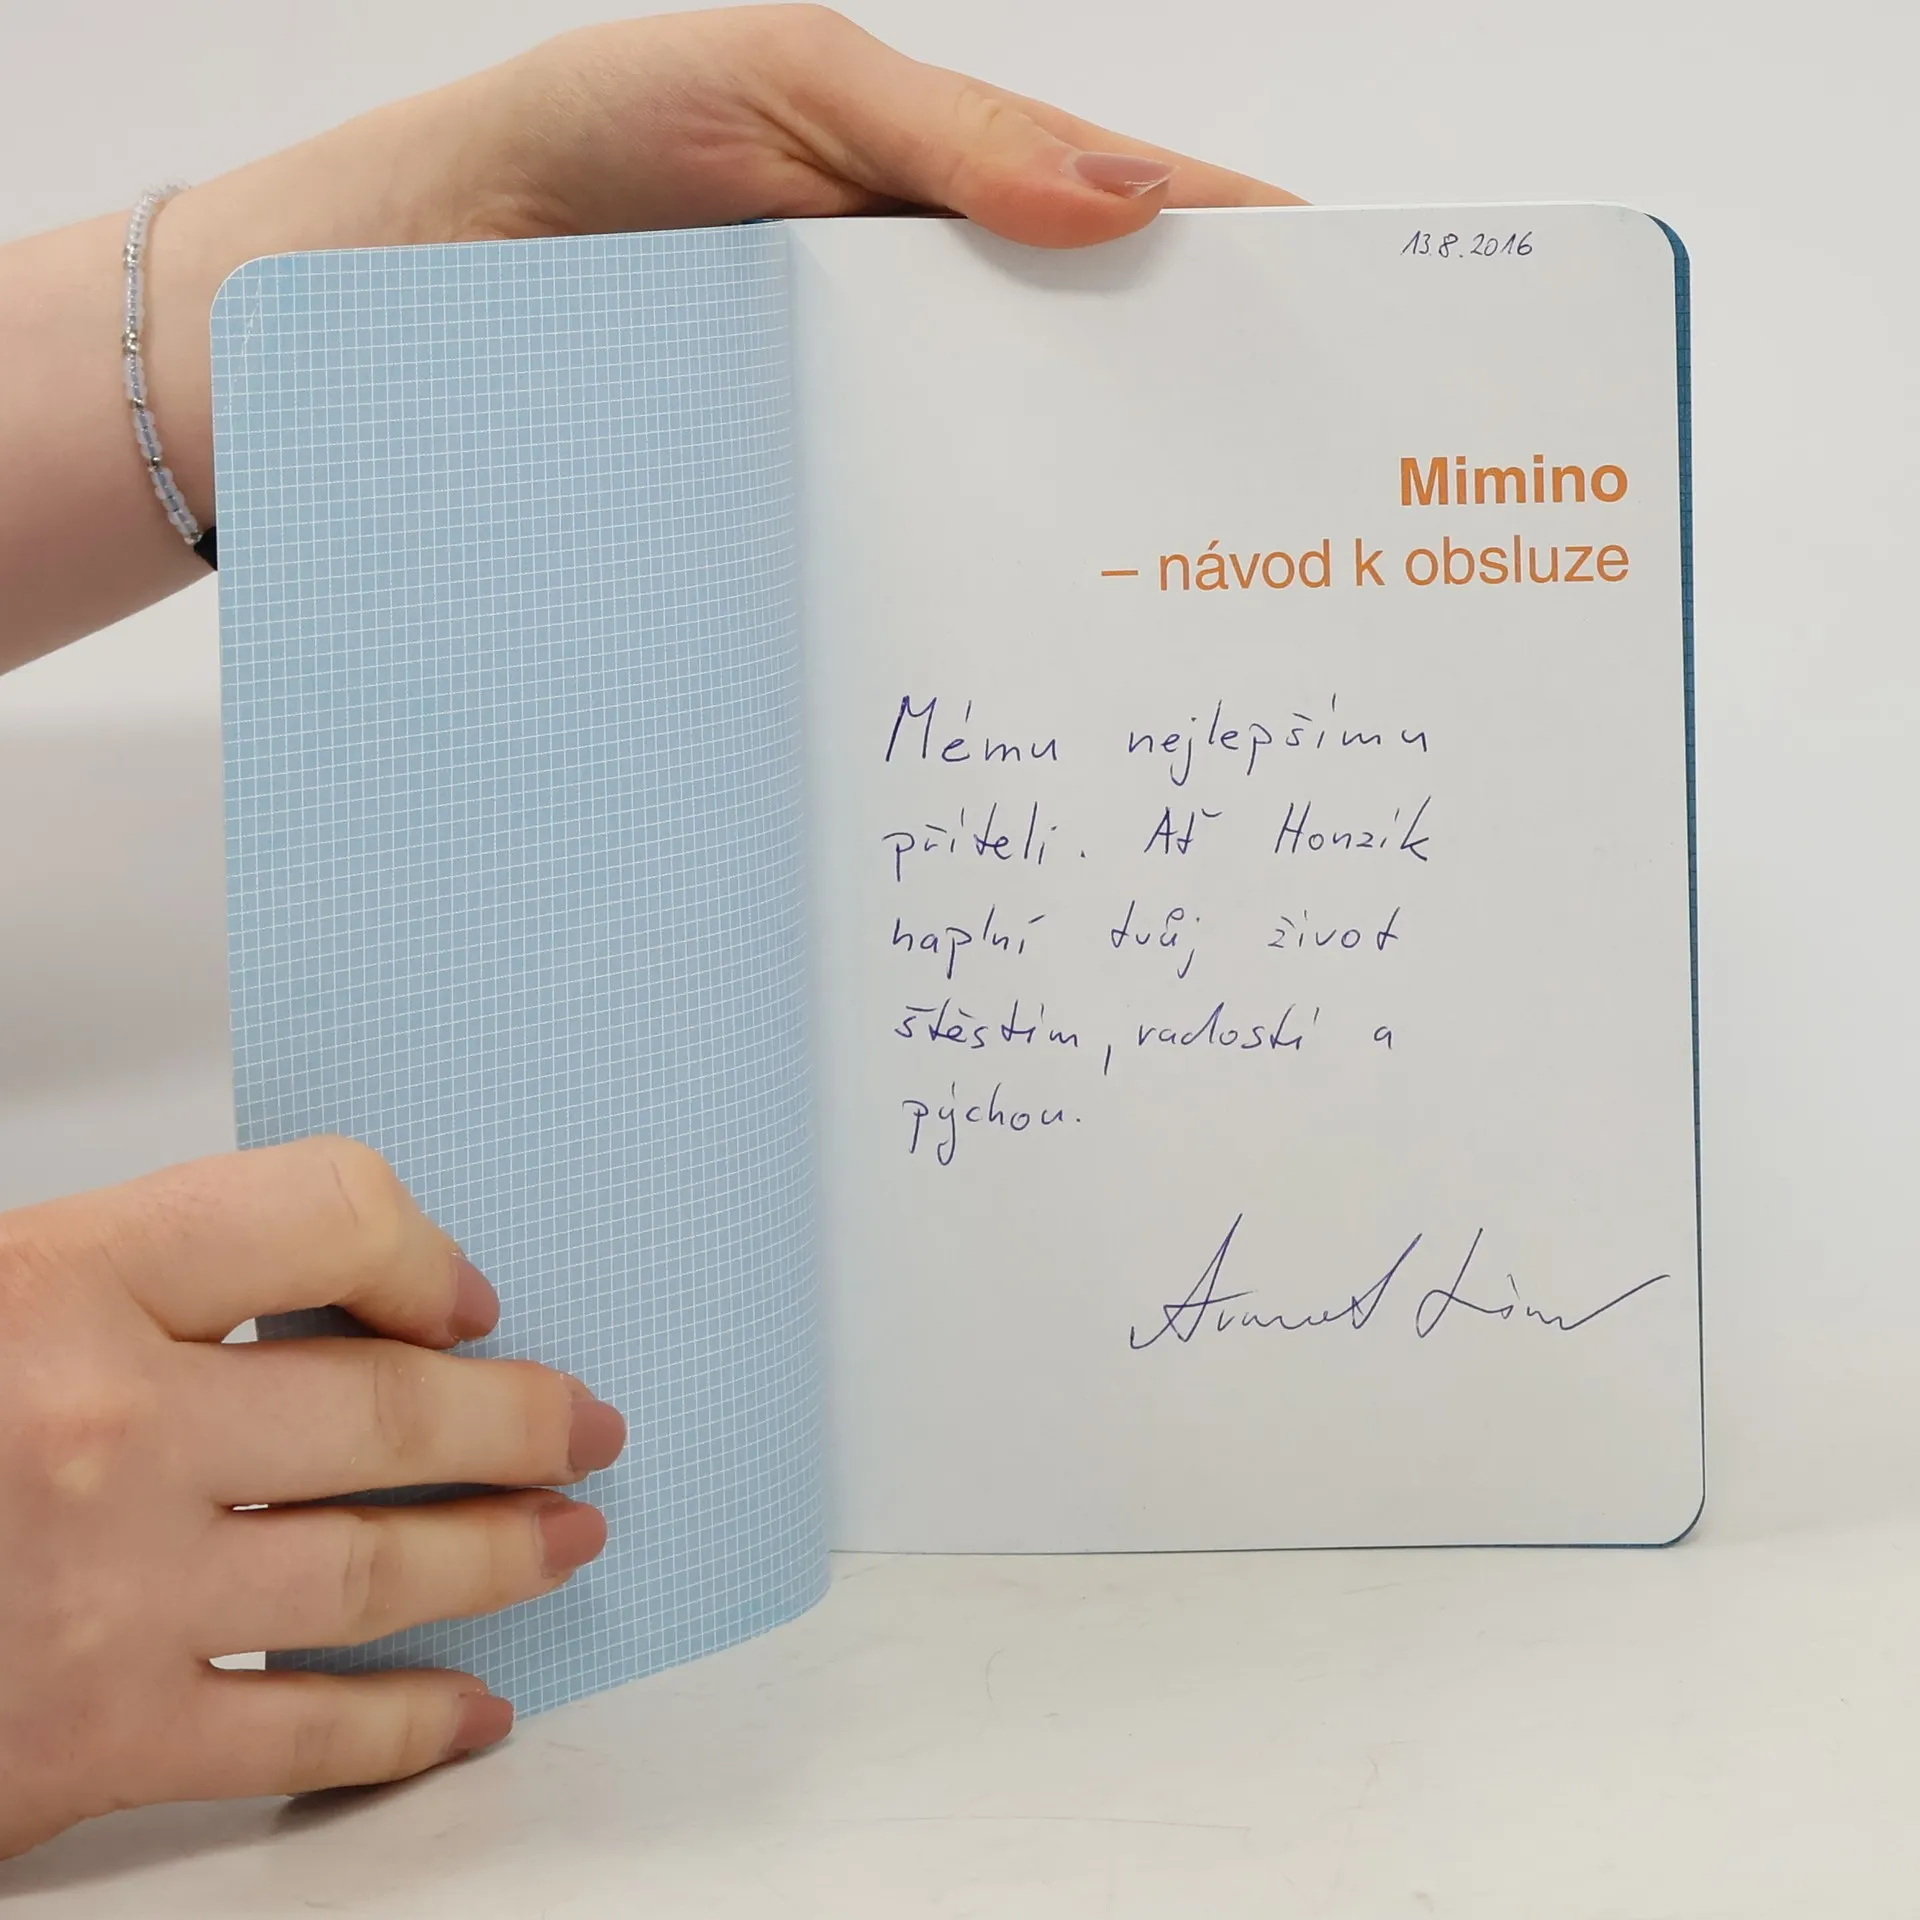 13.8.2016
Mimino
– návod k obsluze
Mému nejlepšímu
příteli. Ať Honzík
naplní tvůj život
štěstím, radostí a
pýchou.